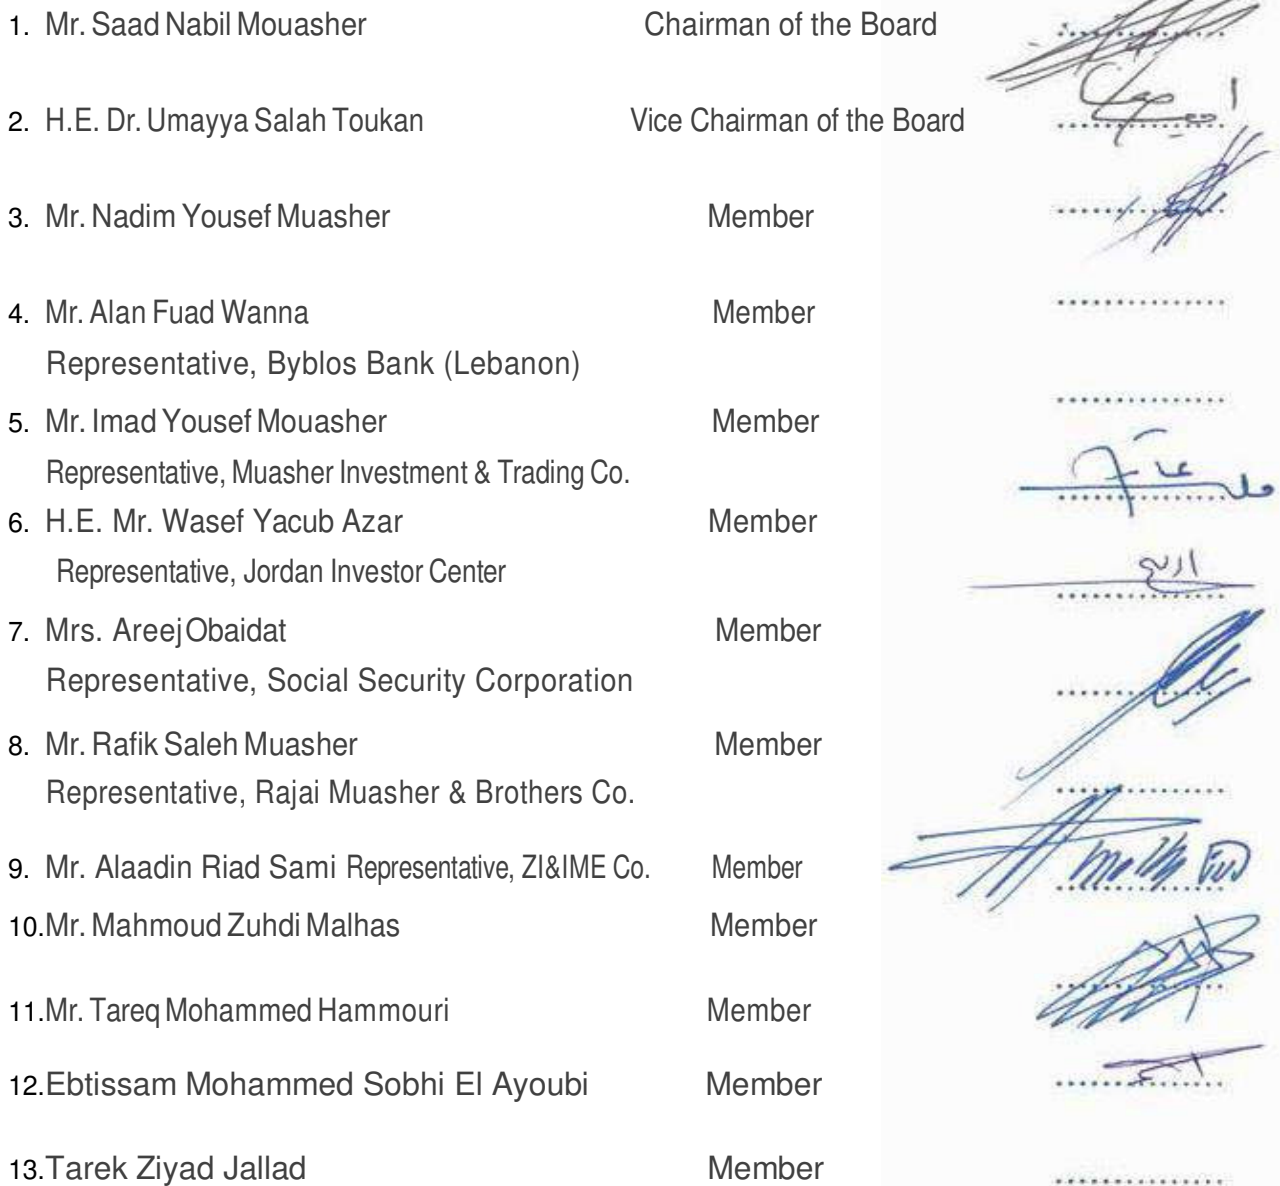 1. Mr. Saad Nabil Mouasher Chairman of the Board
2. H.E. Dr. Umayya Salah Toukan Vice Chairman of the Board
3. Mr. Nadim Yousef Muasher Member
4. Mr. Alan Fuad Wanna Member
Representative, Byblos Bank (Lebanon)
5. Mr. Imad Yousef Mouasher Member
Representative, Muasher Investment & Trading Co.
6. H.E. Mr. Wasef Yacub Azar Member
Representative, Jordan Investor Center
7. Mrs. Areej Obaidat Member
Representative, Social Security Corporation
8. Mr. Rafik Saleh Muasher Member
Representative, Rajai Muasher & Brothers Co.
9. Mr. Alaadin Riad Sami Representative, ZI&IME Co. Member
10. Mr. Mahmoud Zuhdi Malhas Member
11. Mr. Tareq Mohammed Hammouri Member
12. Ebtissam Mohammed Sobhi El Ayoubi Member
13. Tarek Ziyad Jallad Member